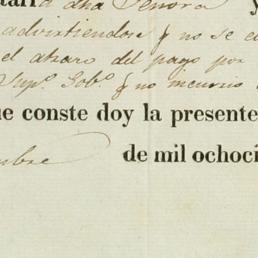 a dha Señora y
advirtiendose q no se e
el atraso del pago por
Sup.º Gob.º q no incurrio
ue conste doy la presente
mbre de mil ochoci